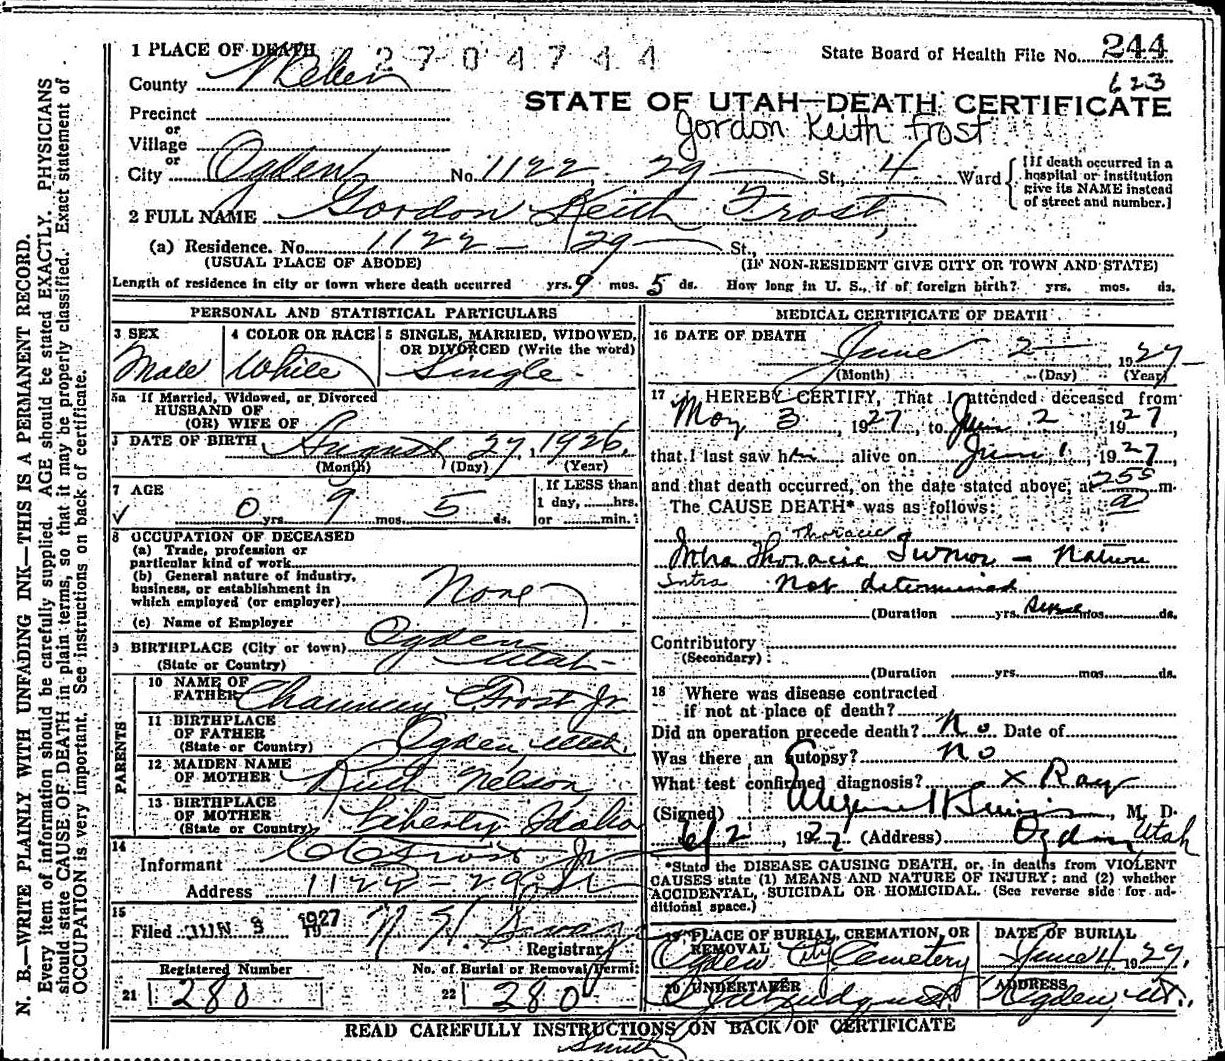 1 PLACE OF DEATH 2704744 State Board of Health File No. 244
County Weber 623
STATE OF UTAH—DEATH CERTIFICATE
Precinct
Gordon Keith Frost
or
Village
or
City Ogden No. 1122 29 St., 4 Ward
[If death occurred in a
hospital or institution
give its NAME instead
of street and number.]
2 FULL NAME Gordon Keith Frost
(a) Residence. No. 1122 - 29 St.,
(USUAL PLACE OF ABODE) (IF NON-RESIDENT GIVE CITY OR TOWN AND STATE)
Length of residence in city or town where death occurred yrs. 9 mos. 5 ds. How long in U. S., if of foreign birth? yrs. mos. ds.
PERSONAL AND STATISTICAL PARTICULARS
3 SEX
Male
4 COLOR OR RACE
White
5 SINGLE, MARRIED, WIDOWED,
OR DIVORCED (Write the word)
Single
5a If Married, Widowed, or Divorced
HUSBAND OF
(OR) WIFE OF
DATE OF BIRTH August 27, 1926.
(Month) (Day) (Year)
7 AGE
0 yrs. 9 mos. 5 ds.
If LESS than
1 day, hrs.
or min.
8 OCCUPATION OF DECEASED
(a) Trade, profession or
particular kind of work
(b) General nature of industry,
business, or establishment in
which employed (or employer) None
(c) Name of Employer
9 BIRTHPLACE (City or town) Ogden
(State or Country) Utah
PARENTS
10 NAME OF
FATHER Chauncey Frost Jr
11 BIRTHPLACE
OF FATHER
(State or Country) Ogden Utah
12 MAIDEN NAME
OF MOTHER Ruth Nelson
13 BIRTHPLACE
OF MOTHER
(State or Country) Liberty Idaho
14
Informant C C Frost Jr
Address 1122 - 29 St
15
Filed JUN 3 1927
Registrar
Registered Number No. of Burial or Removal Permit
21 280 22 280
MEDICAL CERTIFICATE OF DEATH
16 DATE OF DEATH
June 2 1927
(Month) (Day) (Year)
17 I HEREBY CERTIFY, That I attended deceased from
May 3, 1927, to June 2 1927,
that I last saw him alive on June 1, 1927,
and that death occurred, on the date stated above, at 255 a m.
The CAUSE DEATH* was as follows:
Thoracic
Intra Thoracic Tumor - Nature
Intra Not determined
(Duration yrs. mos. ds.
Contributory
(Secondary)
(Duration yrs. mos. ds.
18 Where was disease contracted
if not at place of death?
Did an operation precede death? No Date of
Was there an autopsy? No
What test confirmed diagnosis? X Ray
(Signed) M. D.
6/2, 1927 (Address) Ogden, Utah
*State the DISEASE CAUSING DEATH, or, in deaths from VIOLENT
CAUSES state (1) MEANS AND NATURE OF INJURY; and (2) whether
ACCIDENTAL, SUICIDAL OR HOMICIDAL. (See reverse side for ad-
ditional space.)
19 PLACE OF BURIAL, CREMATION, OR
REMOVAL
Ogden City Cemetery
DATE OF BURIAL
June 4 1927.
20 UNDERTAKER
ADDRESS
Ogden Ut.
READ CAREFULLY INSTRUCTIONS ON BACK OF CERTIFICATE
Smith
N. B.—WRITE PLAINLY WITH UNFADING INK—THIS IS A PERMANENT RECORD.
Every item of information should be carefully supplied. AGE should be stated EXACTLY. PHYSICIANS
should state CAUSE OF DEATH in plain terms, so that it may be properly classified. Exact statement of
OCCUPATION is very important. See instructions on back of certificate.